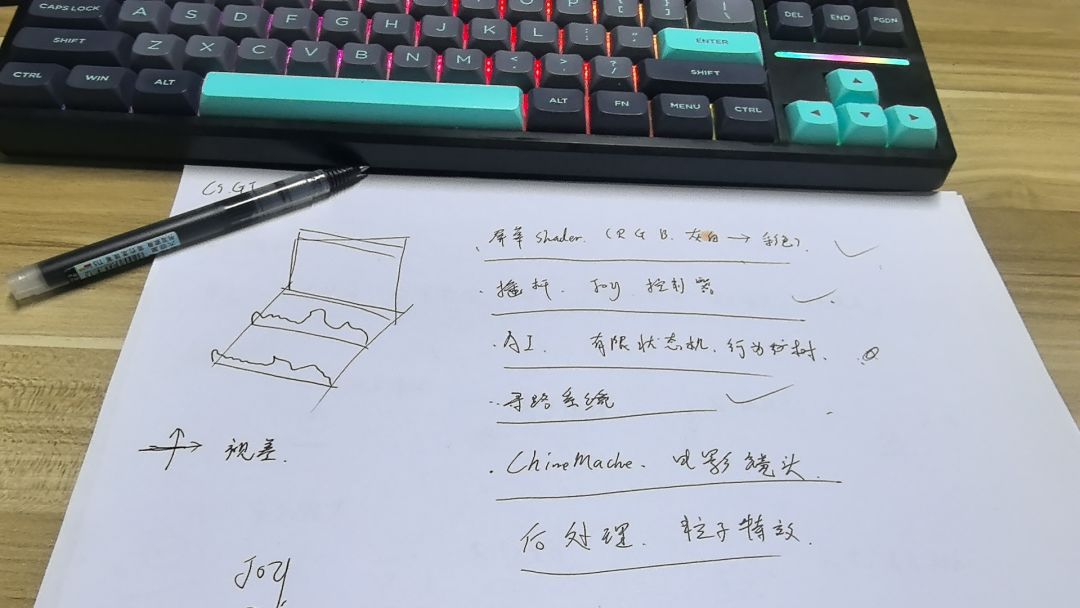 CAPS LOCK A S D F G H J K L : ; " ' ENTER DEL END PGDN
SHIFT Z X C V B N M < , > . ? / SHIFT
CTRL WIN ALT ALT FN MENU CTRL
CS.GI
屏幕 shader. (RGB. 灰白 → 彩色).
摇杆. Joy 控制器
AI. 有限状态机. 行为树.
寻路系统
ChineMache. 电影镜头.
后处理. 粒子特效.
视差.
Joy